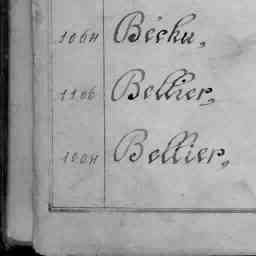 1064 Bécku,
1106 Bellier,
1004 Bellier,